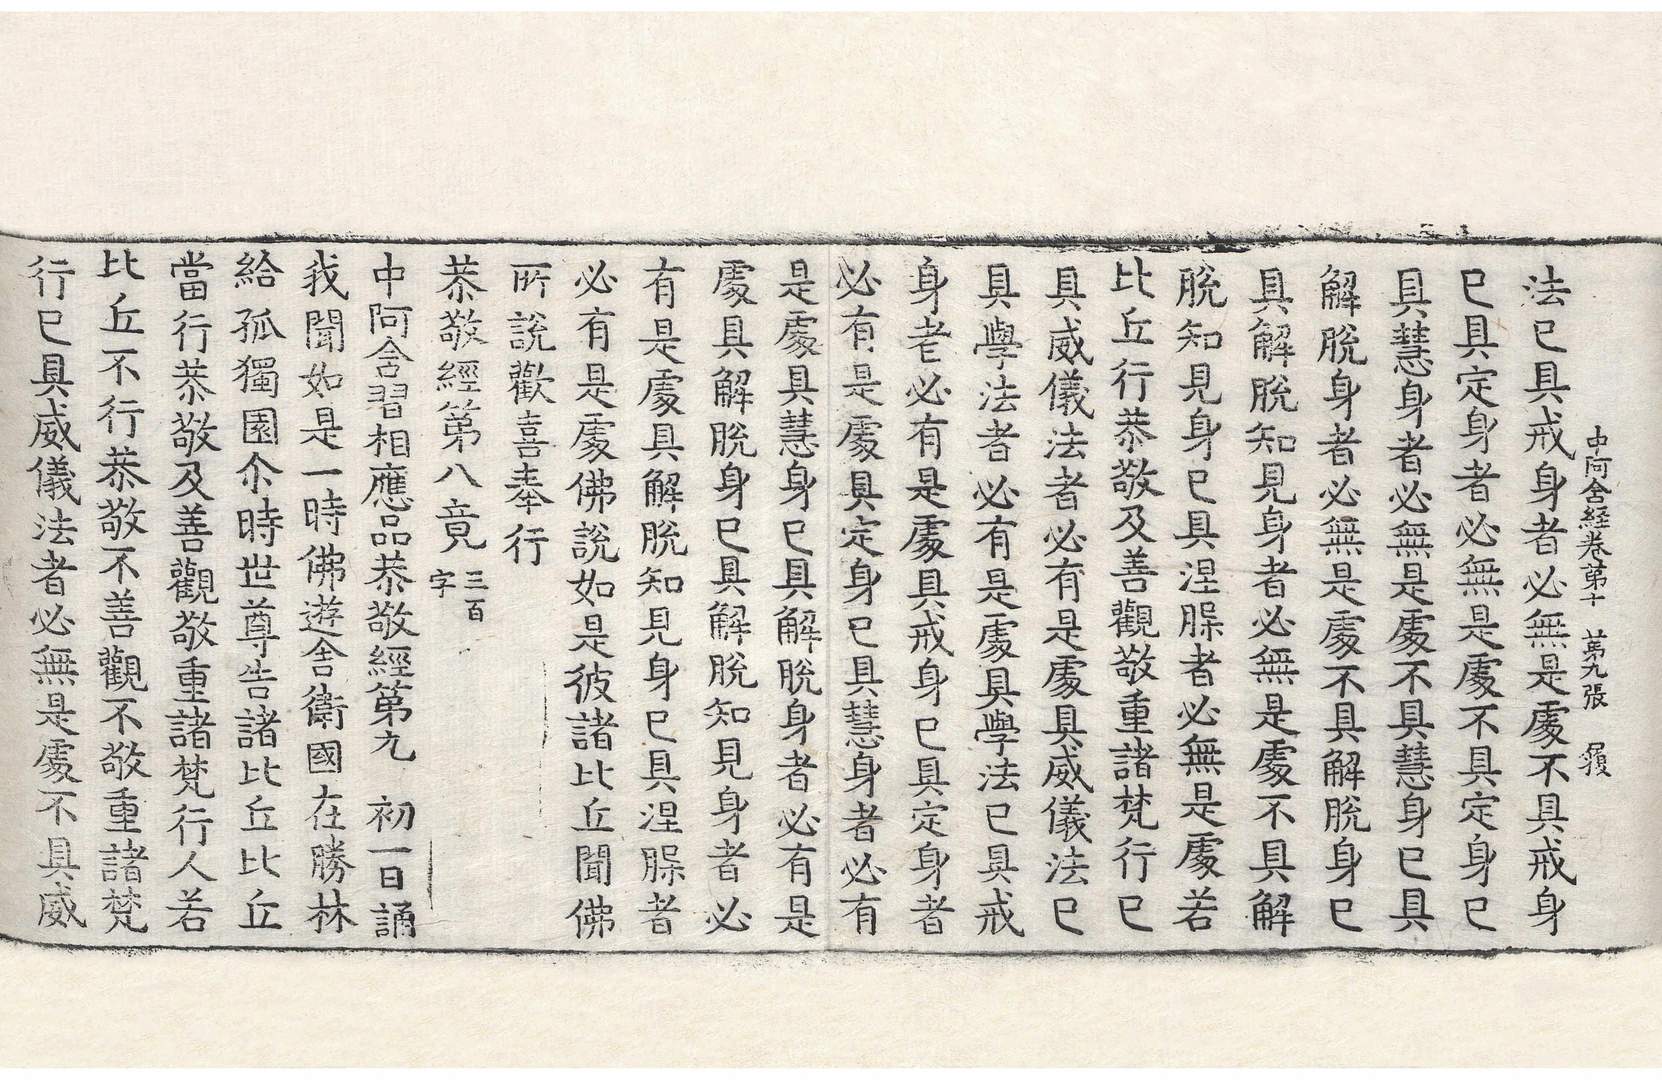 中阿含經卷第十 第九張 履
法已具戒身者必無是處不具戒身
已具定身者必無是處不具定身已
具慧身者必無是處不具慧身已具
解脫身者必無是處不具解脫身已
具解脫知見身者必無是處不具解
脫知見身已具涅槃者必無是處若
比丘行恭敬及善觀敬重諸梵行已
具威儀法者必有是處具威儀法已
具學法者必有是處具學法已具戒
身者必有是處具戒身已具定身者
必有是處具定身已具慧身者必有
是處具慧身已具解脫身者必有是
處具解脫身已具解脫知見身者必
有是處具解脫知見身已具涅槃者
必有是處佛說如是彼諸比丘聞佛
所說歡喜奉行
恭敬經第八竟 三百字
中阿含習相應品恭敬經第九 初一日誦
我聞如是一時佛遊舍衛國在勝林
給孤獨園尒時世尊告諸比丘比丘
當行恭敬及善觀敬重諸梵行人若
比丘不行恭敬不善觀不敬重諸梵
行已具威儀法者必無是處不具威